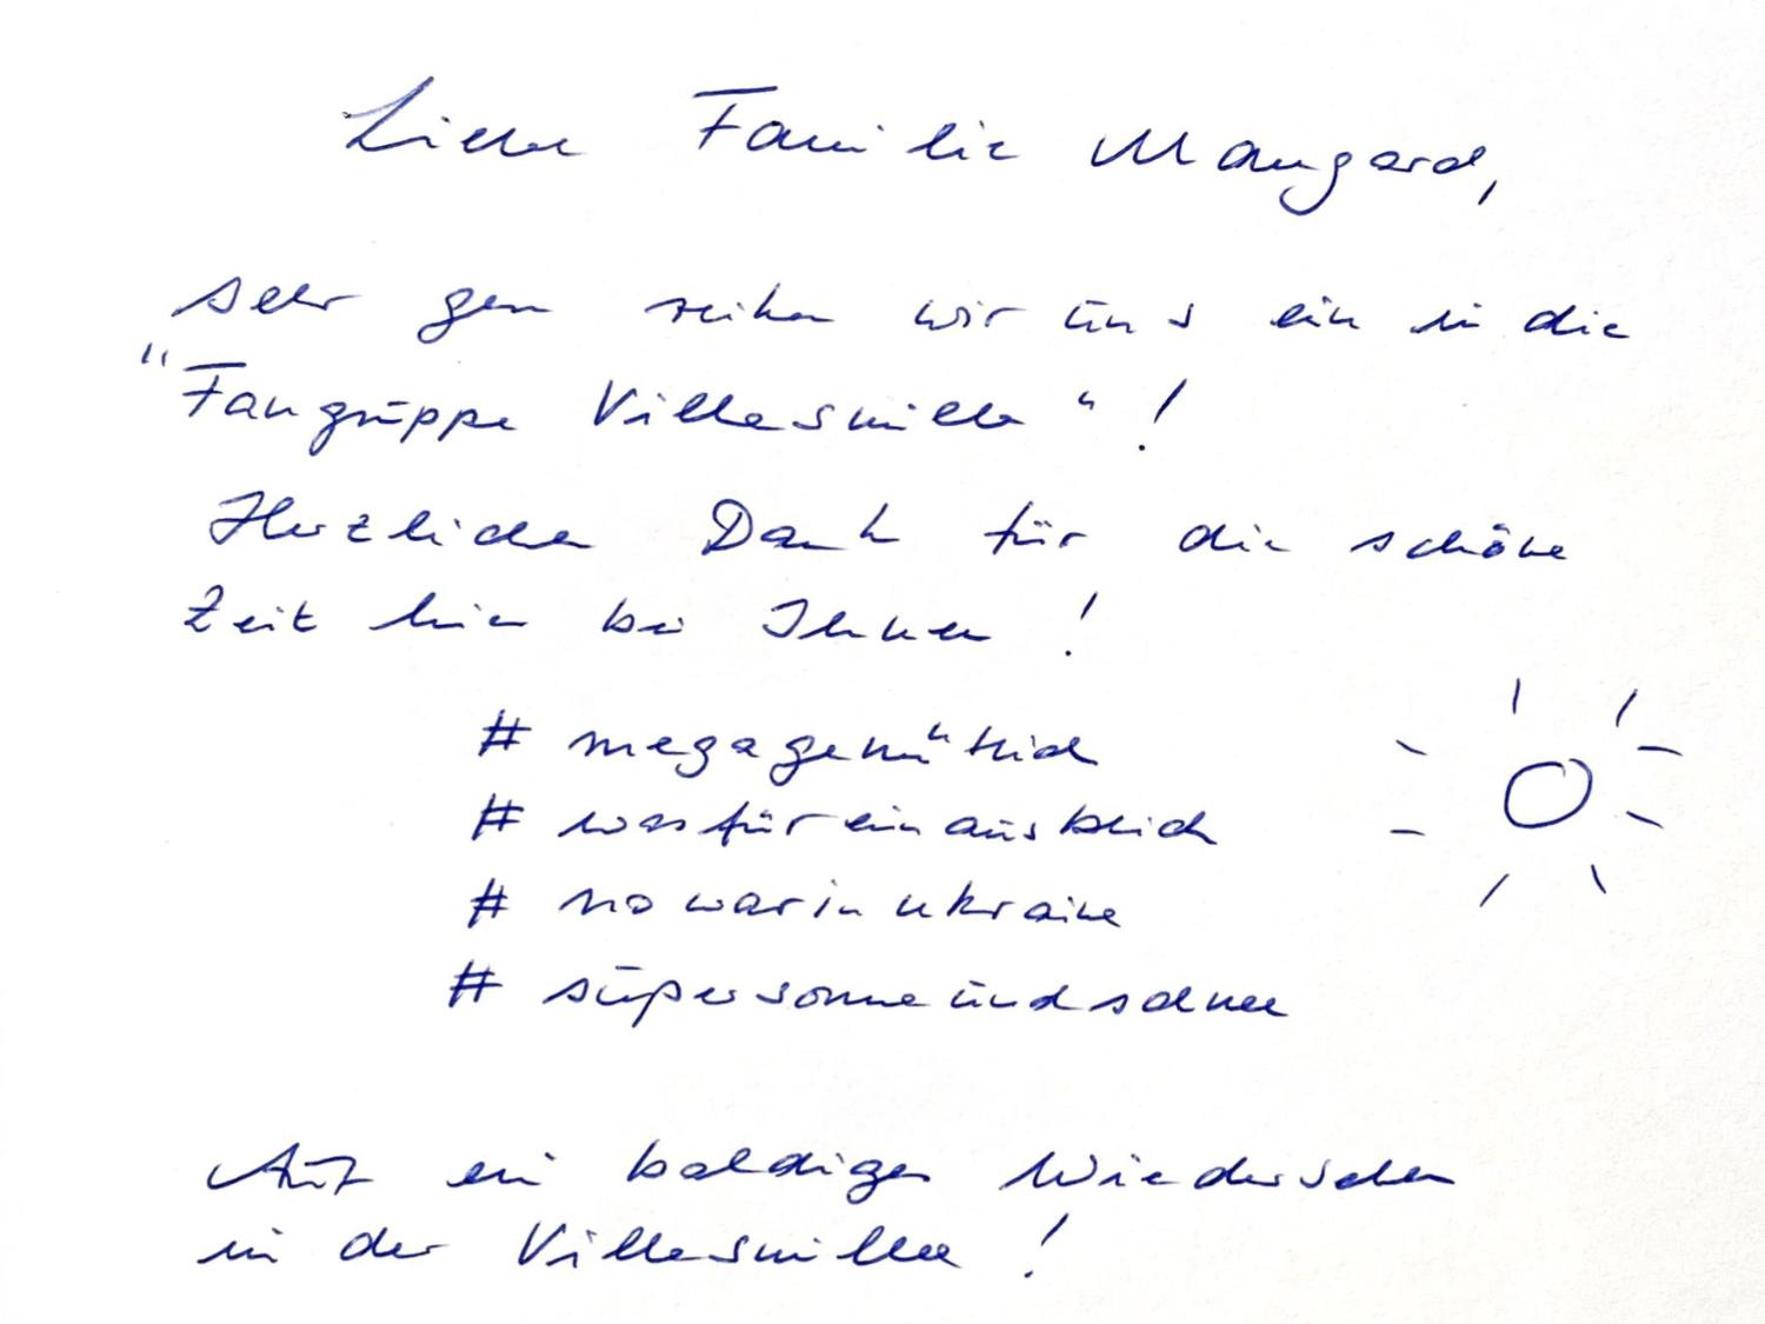 Liebe Familie Mangard,
sehr gern reihen wir uns ein in die
"Fangruppe Villasmilla"!
Herzlichen Dank für die schöne
Zeit hier bei Ihnen!
# megagemütlich
# wasfüreinausblick
# nowarinukraine
# supersonneundschnee
Auf ein baldiges Wiedersehen
in der Villasmilla!